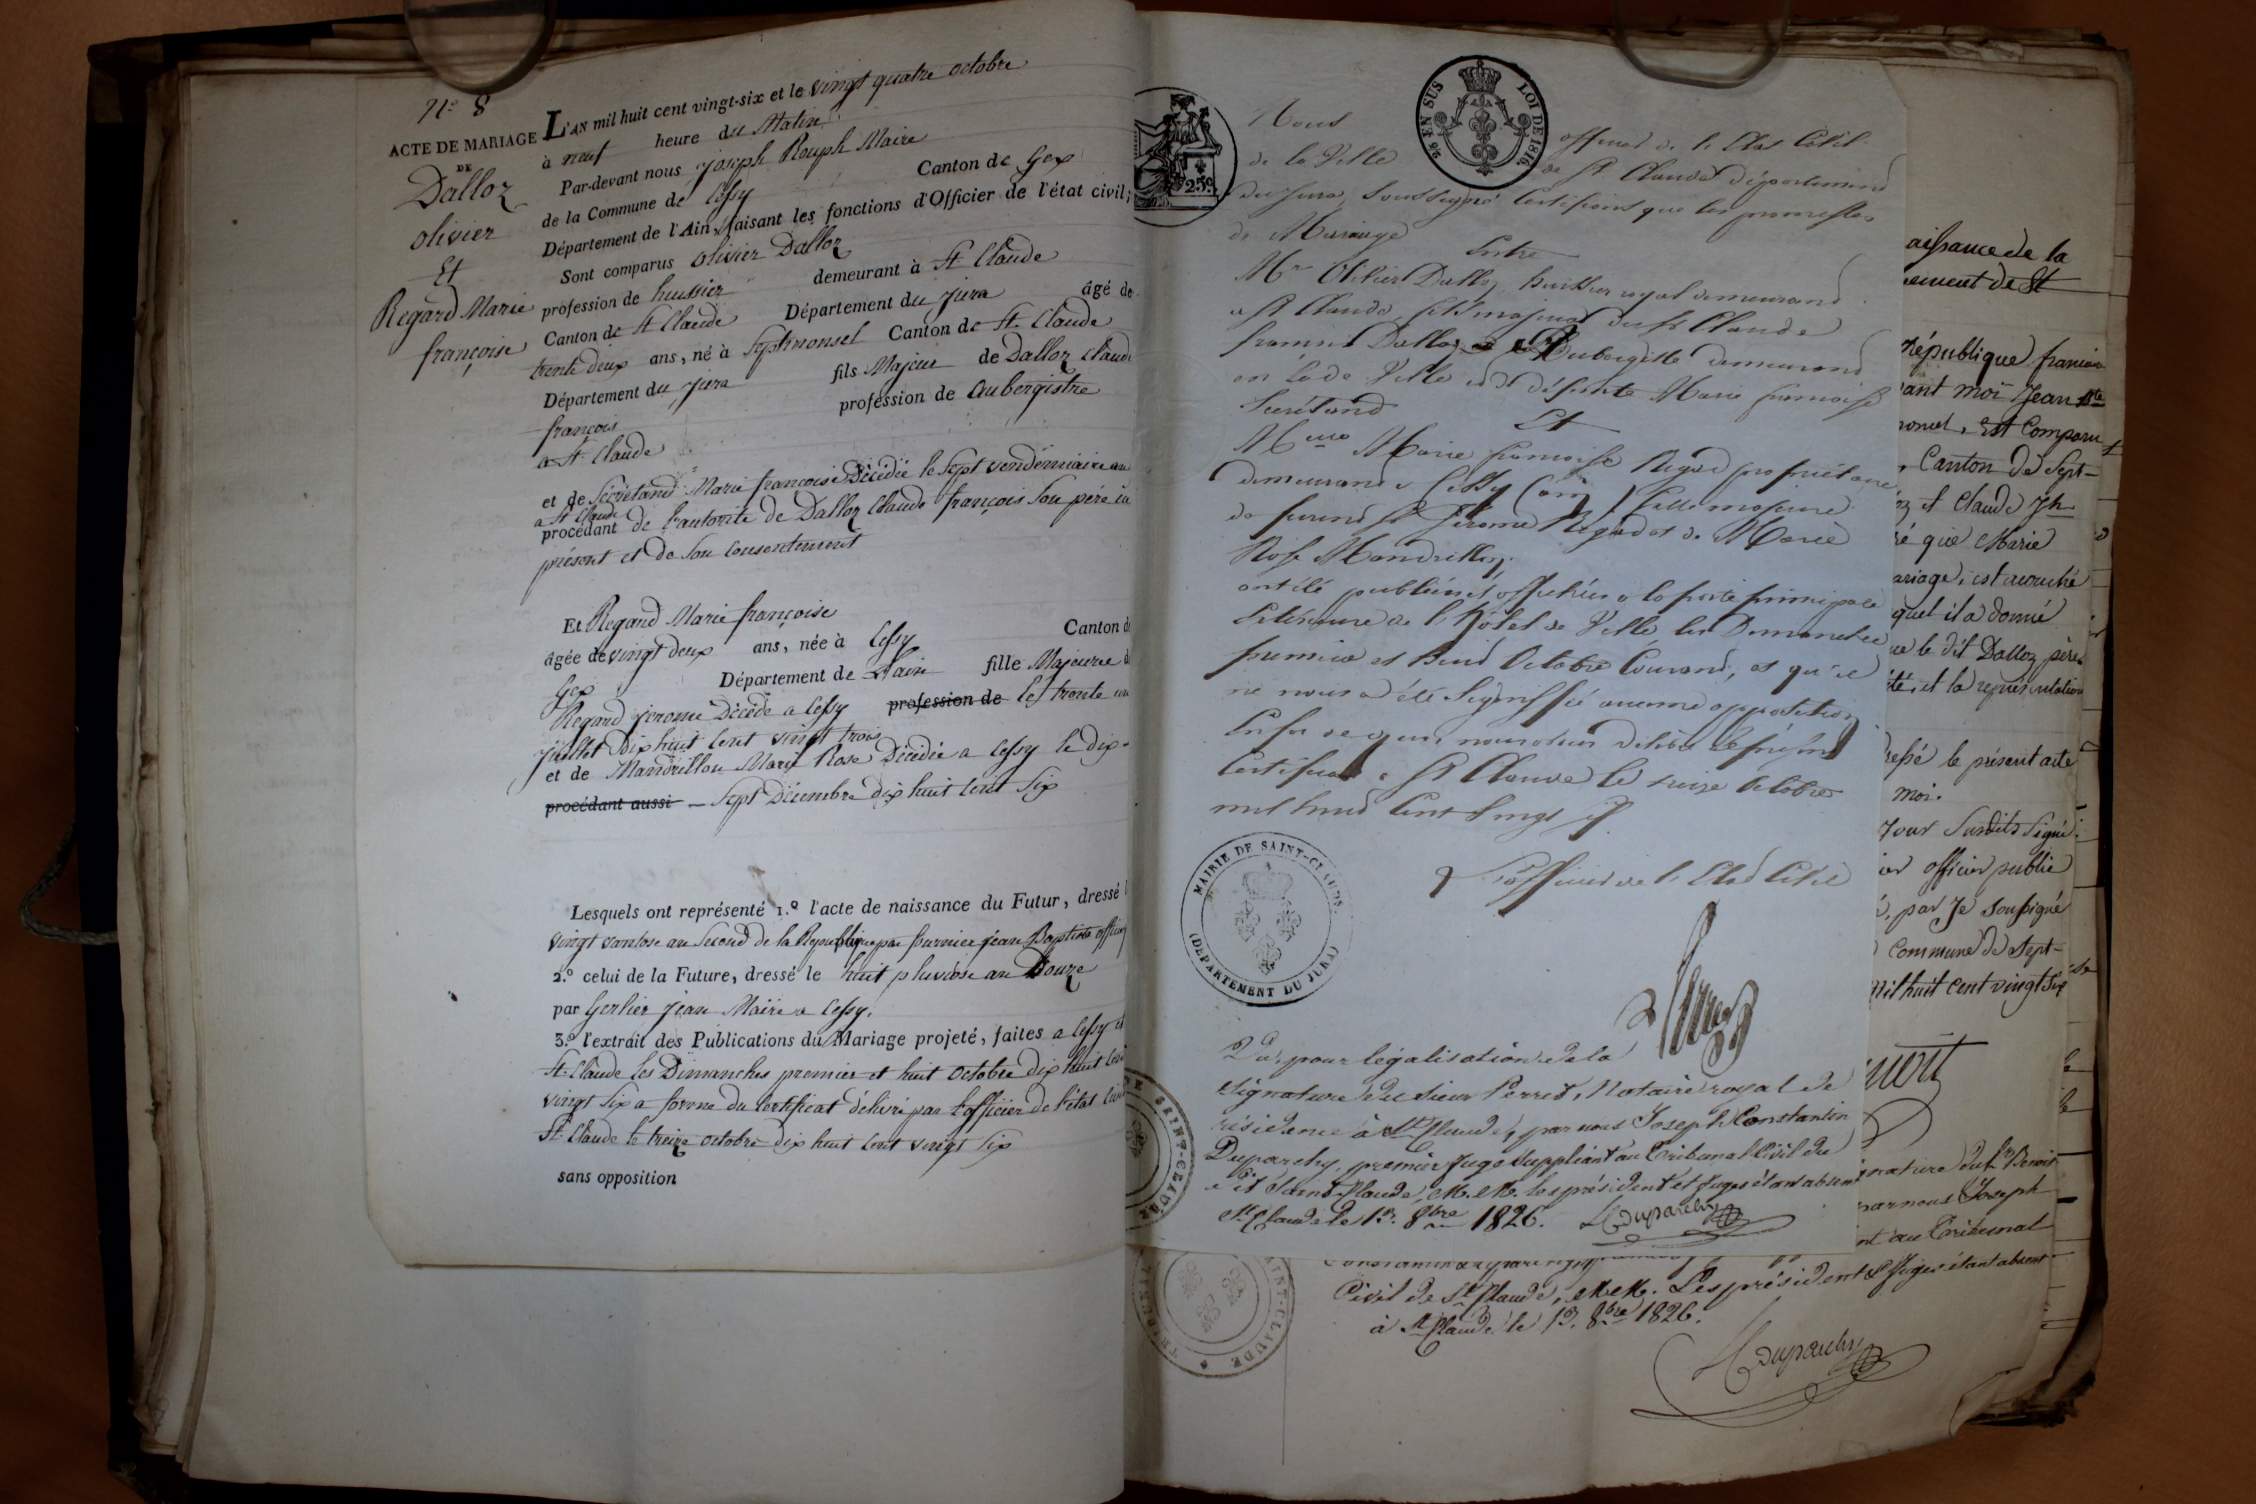 N.º 8
ACTE DE MARIAGE
DE
Dalloz
olivier
Et
Regard Marie
françoise
L'AN mil huit cent vingt-six et le vingt quatre octobre
à neuf heure du Matin
Par-devant nous joseph Rouph Maire
de la Commune de Cessy Canton de Gex
Département de l'Ain, faisant les fonctions d'Officier de l'état civil;
Sont comparus olivier Dalloz
profession de huissier demeurant à St Claude
Canton de St Claude Département du jura âgé de
trente deux ans, né à Septmonsel Canton de St. Claude
Département du jura fils Majeur de Dalloz claude
françois profession de aubergistre
a St Claude
et de Secretand Marie françoise Décédée le Sept vendémiaire an
a St Claude
procédant de l'autorité de Dalloz Claude françois Son père ici
présent et de Son consentement
Et Regard Marie françoise
âgée de vingt deux ans, née à Cessy Canton de
Gex Département de Lain fille Majeure de
Regard jerome Décédé a Cessy profession de le trente un
juillet dix huit cent vingt trois
et de Mandrillon Marie Rose Décédée a Cessy le dix-
procédant aussi — Sept Décembre dix huit cent Six
Lesquels ont représenté 1.º l'acte de naissance du Futur, dressé l
vingt vantose an Second de la Republique par fournier jean Baptiste officier
2.º celui de la Future, dressé le huit pluviose an Douze
par Gerlier jean Maire a Cessy.
3.º l'extrait des Publications du Mariage projeté, faites a Cessy et
St. Claude les Dimanches premier et huit octobre dix huit cent
vingt Six a forme du Certificat délivré par l'officier de l'état Civil
St. Claude le treize octobre dix huit cent vingt Six
sans opposition
25c.
26 EN SUS LOI DE 1816.
Nous officier de l'Etat Civil
de la Ville de St Claude département
du jura, Soussigné Certifions que les promesses
de Mariage
Entre
Mr Olivier Dalloz, huissier royal demeurant
a St Claude, fils majeur du Sr Claude
francois Dalloz Aubergiste demeurant
en la de Ville et de défunte Marie francoise
Secrétand
Et
Melle Marie francoise Regard propriétaire
demeurant a Cessy (ain) fille majeure
de furent Sr Jérome Regard et de Marie
Rose Mandrillon,
ont été publiées et affichées a la porte principale
Extérieure de l'hôtel de Ville les Dimanches
premier et huit Octobre Courant, et qu'il
ne nous a été Signiffié aucune opposition
En foi de quoi nous avons délivré le présent
Certificat a St Claude le treize Octobre
mil huit Cent Vingt Six
L'officier de l'Etat Civil
MAIRIE DE SAINT-CLAUDE.
(DÉPARTEMENT DU JURA)
Vu, pour légalisation de la
signature du sieur Perret, Notaire royal de
résidence à St Claude, par nous Joseph Constantin
Duparchy, premier Juge Suppliant au Tribunal Civil du
dit Saint Claude, M.M. les président et Juges étant absents
St Claude le 13. 8bre 1826. Duparchy
DE SAINT-CLAUDE
Civil de St Claude, M.M. Les président et Juges étant absent
à St Claude le 13. 8bre 1826.
Duparchy
TRIBUNAL SAINT-CLAUDE
aissance de la
nement de St
république francaise
vant moi Jean Bte
moncel, Est Comparu
, Canton de Sept-
oz et Claude Jh
ré que Marie
ariage, est accouché
quel il a donné
ue le dit Dalloz père
ité, et la représentation
repé le présent acte
moi.
Jour Susdits Signé:
ier officier public
é, par Je Soussigné
commune de Sept-
mil huit cent vingt Six
gnature du Sr Benoit
par nous Joseph
nt au Tribunal